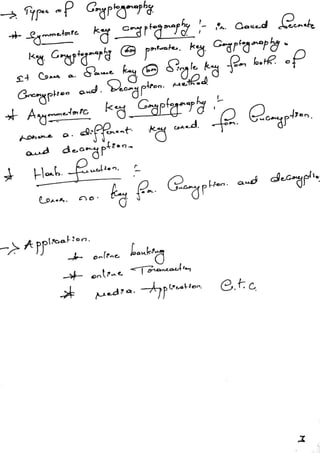 → Types of Cryptography
* Symmetric key cryptography :- is Called Secrete
key Cryptography (or) private key Cryptography.
It Uses a Same key (or) Single key for both of
Encryption and Decryption. method
* Asymmetric key Cryptography :-
a different key used for Encryption.
and decryption.
* Hash function :-
Uses no key for Encryption. and decryption
→ Application.
* online banking
* online Transaction
* Media Application e.t.c.
1